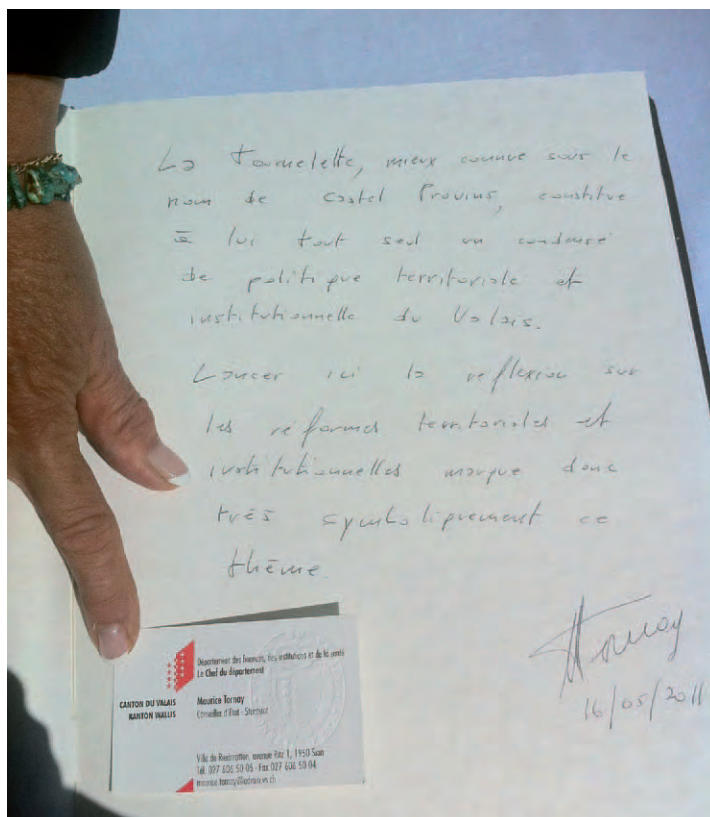 La Tournelette, mieux connue sous le
nom de Castel Provins, constitue
à lui tout seul un condensé
de politique territoriale et
institutionnelle du Valais.
Lancer ici la réflexion sur
les réformes territoriales et
institutionnelles marque donc
très symboliquement ce
thème.
Tornay
16/05/2011
Département des finances, des institutions et de la santé
Le Chef du département
CANTON DU VALAIS
KANTON WALLIS
Maurice Tornay
Conseiller d'Etat - Staatsrat
avenue Ritz 1, 1950 Sion
Tél. 027 606 50 05 - Fax 027 606 50 04
maurice.tornay@admin.vs.ch